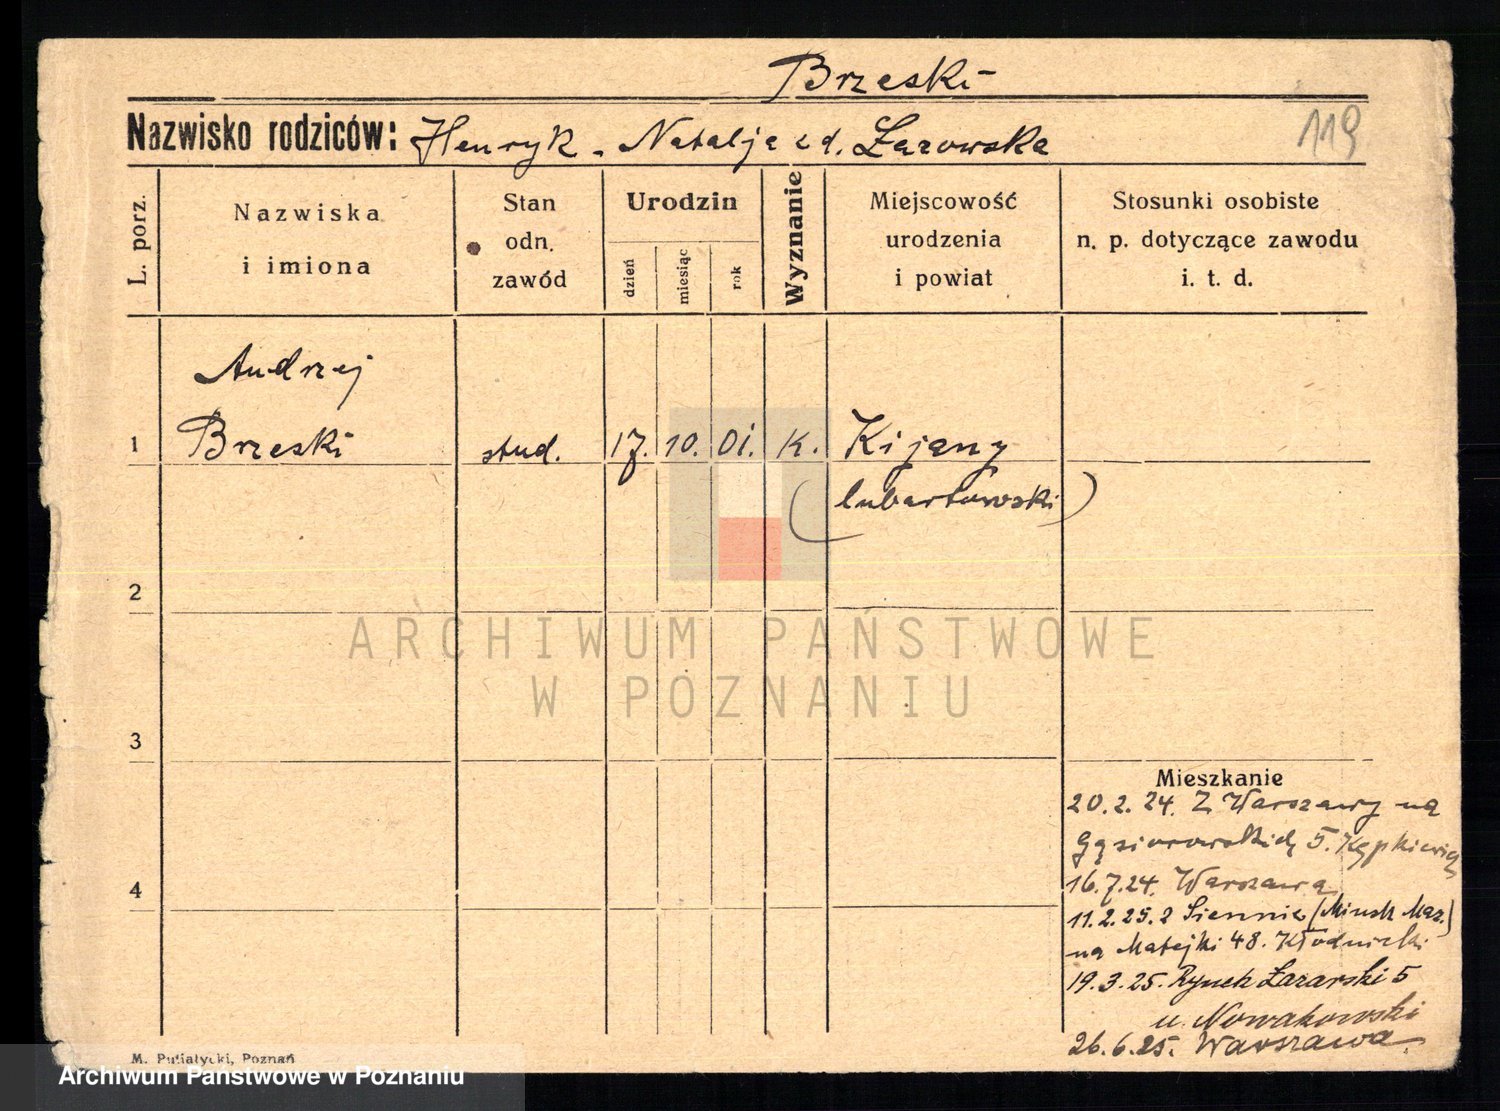 Brzeski
Nazwisko rodziców: Henryk - Natalja zd. Łazowska
119
L. porz.
Nazwiska
i imiona
Stan
odn.
zawód
Urodzin
dzień
miesiąc
rok
Wyznanie
Miejscowość
urodzenia
i powiat
Stosunki osobiste
n. p. dotyczące zawodu
i. t. d.
Andrzej
1 Brzeski stud. 17. 10. 01. K. Kijany
(lubartowski)
2
3
4
ARCHIWUM PAŃSTWOWE
W POZNANIU
Mieszkanie
20.2.24. Z Warszawy na
Gąsiorowskich 5.
16.7.24. Warszawa
11.2.25. z Siennic (Mińsk Maz.)
na Matejki 48. Kłodnicki
19.3.25. Rynek Łazarski 5
u. Nowakowski
26.6.25. Warszawa
M. Putiatycki, Poznań
Archiwum Państwowe w Poznaniu